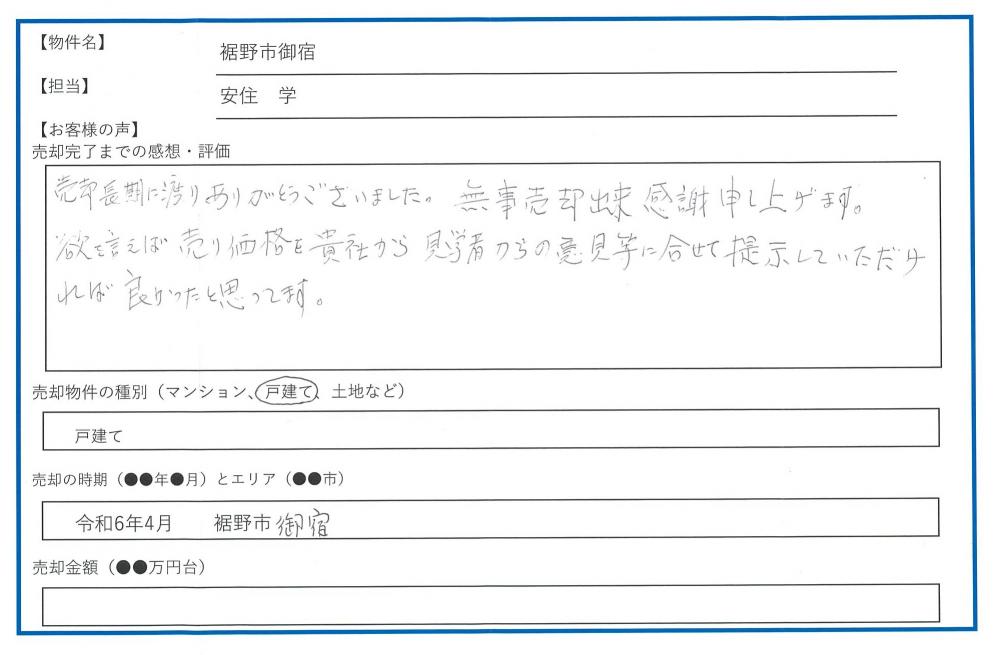 【物件名】 裾野市御宿
【担当】 安住　学
【お客様の声】
売却完了までの感想・評価
売却長期に渡りありがとうございました。無事売却出来感謝申し上げます。
欲を言えば売り価格を貴社から見学者からの意見等に合せて提示していただけ
れば良かったと思ってます。
売却物件の種別（マンション、戸建て、土地など）
戸建て
売却の時期（●●年●月）とエリア（●●市）
令和6年4月　裾野市御宿
売却金額（●●万円台）